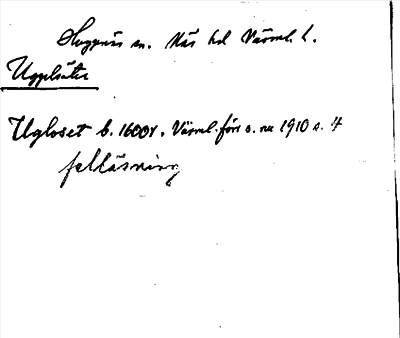 Huggenäs sn. Näs hd Värml. l.
Ugglsäter
Ugloset b. 1600r. Värml. förr o. nu 1910 s. 4
felläsning